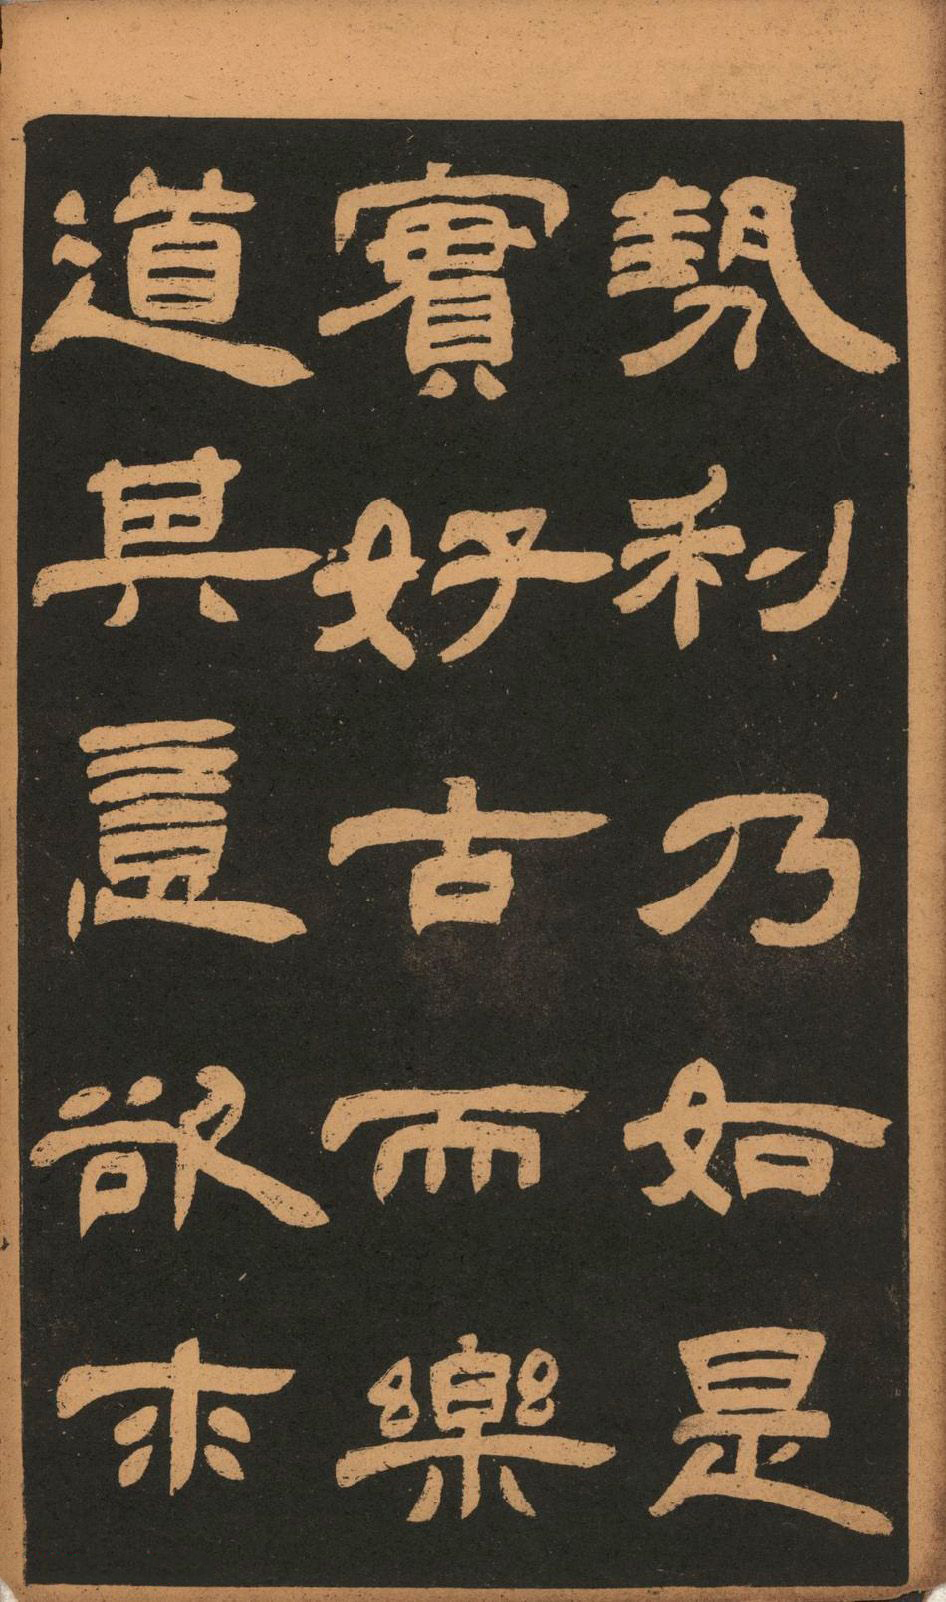 勢利乃如是
實好古而樂
道其意欲求